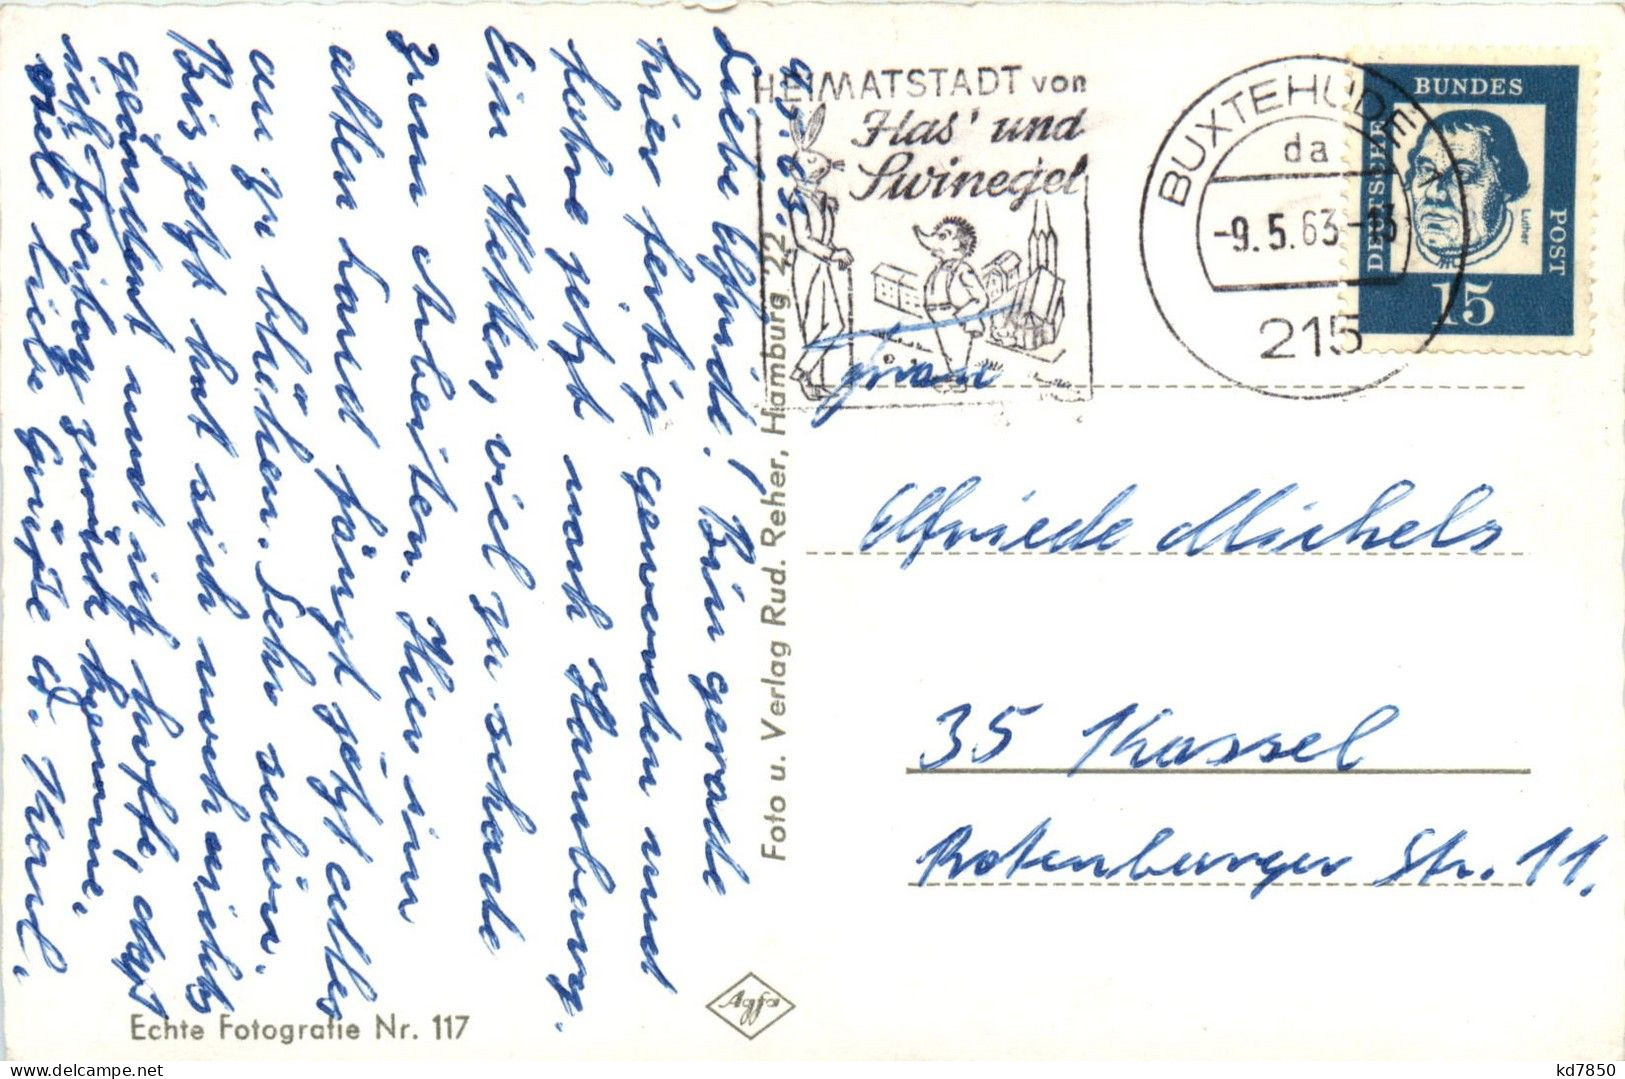 9.5.63.
Liebe Elfriede! Bin gerade
hier fertig geworden und
fahre jetzt nach Hamburg.
Ein Wetter, viel zu schade
zum Arbeiten. Hier im
alten Land fängt jetzt alles
an zu blühen. Sehr schön.
Bis jetzt hat sich noch nichts
geändert und ich hoffe, daß
ich Freitag zurück komme.
viele liebe Grüße d. Karl.
Foto u. Verlag Rud. Reher, Hamburg 22
Echte Fotografie Nr. 117
Agfa
HEIMATSTADT von
Has' und
Swinegel
BUXTEHUDE 1
da
-9.5.63-13
215
DEUTSCHE
BUNDES
POST
Luther
15
Frau
Elfriede Michels
35 Kassel
Rotenburger Str. 11.
kd7850